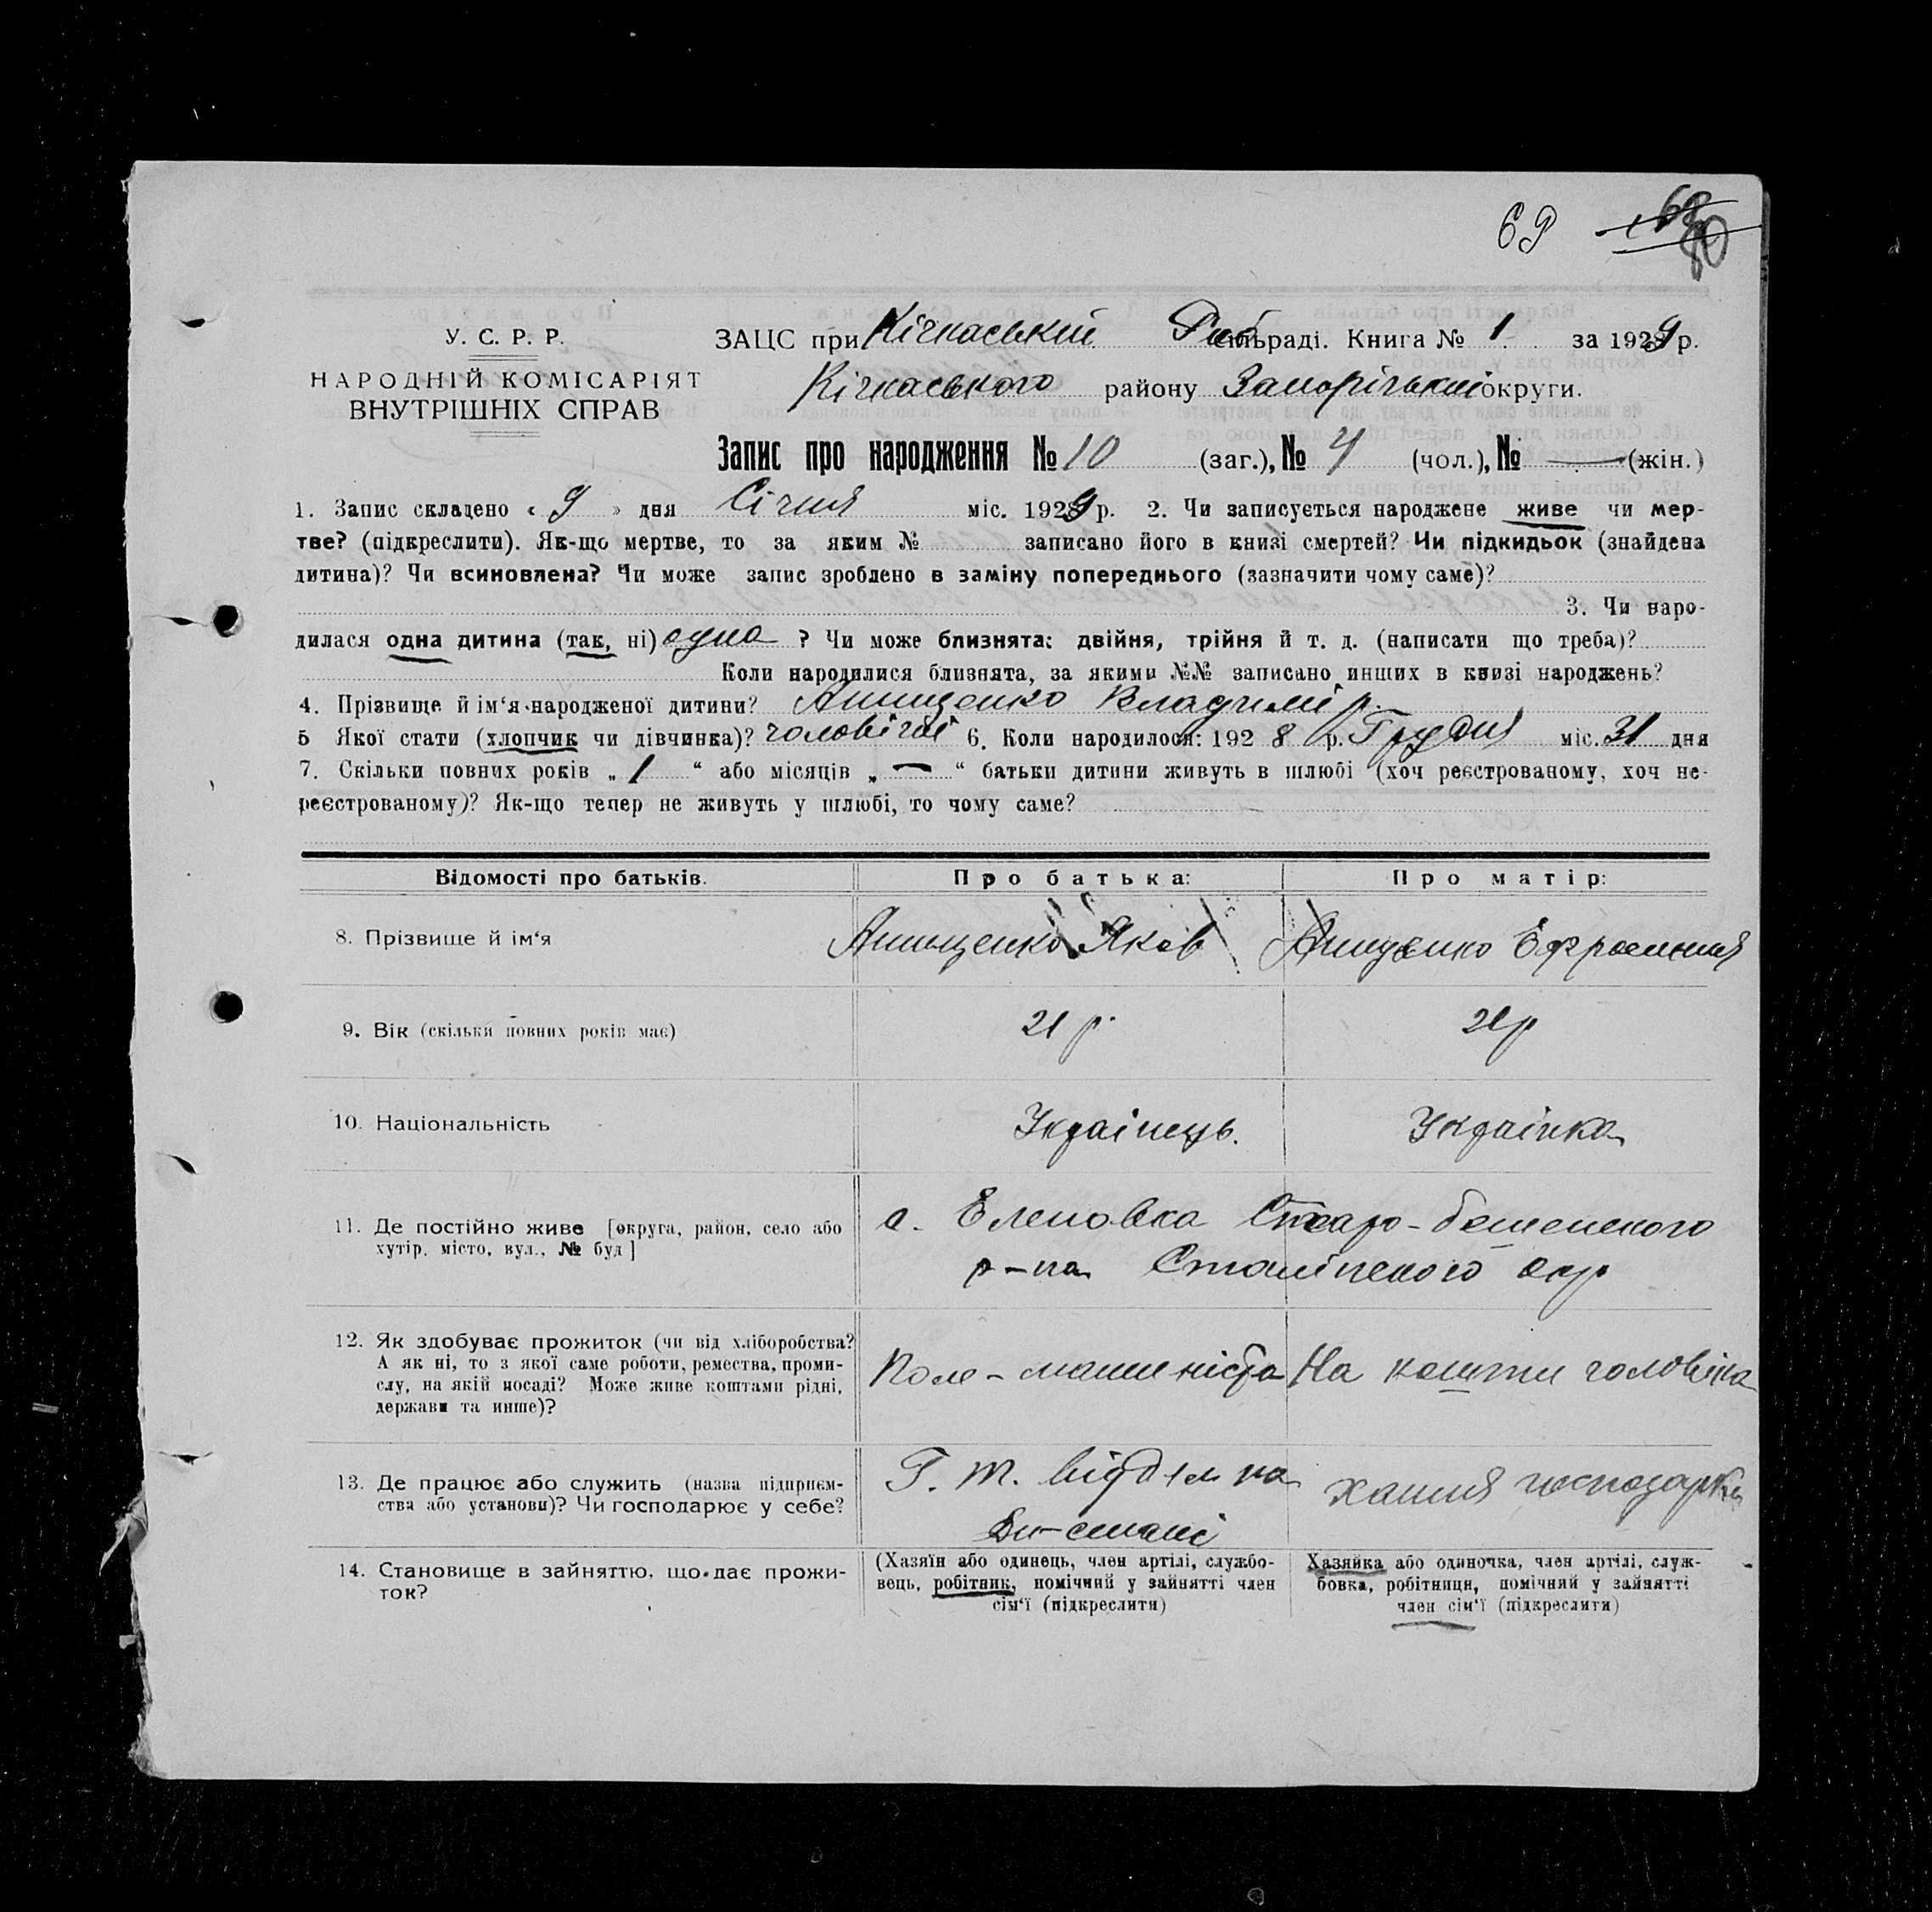 69 68 80
У. С. Р. Р.
НАРОДНІЙ КОМІСАРІЯТ
ВНУТРІШНІХ СПРАВ
ЗАЦС при Кічкаській раді. Книга № 1 за 1929 р.
Кічкаського району Запорізької округи.
Запис про народження № 10 (заг.), № 4 (чол.), № — (жін.)
1. Запис складено « 9 » дня Січня міс. 1929 р. 2. Чи записується народжене живе чи мер-
тве? (підкреслити). Як-що мертве, то за яким № записано його в книзі смертей? Чи підкидьок (знайдена
дитина)? Чи всиновлена? Чи може запис зроблено в заміну попереднього (зазначити чому саме)?
3. Чи наро-
дилася одна дитина (так, ні) одна ? Чи може близнята: двійня, трійня й т. д. (написати що треба)?
Коли народилися близнята, за якими №№ записано инших в книзі народжень?
4. Прізвище й ім‘я народженої дитини? Анищенко Владимір.
5 Якої стати (хлопчик чи дівчинка)? чоловічої 6. Коли народилося: 192 8 р. Грудня міс. 31 дня
7. Скільки повних років „ 1 “ або місяців „ — “ батьки дитини живуть в шлюбі (хоч реєстрованому, хоч не-
реєстрованому)? Як-що тепер не живуть у шлюбі, то чому саме?
Відомості про батьків. Про батька: Про матір:
8. Прізвище й ім‘я Анищенко Яков Анищенко
9. Вік (скільки повних років має) 21 р. 21 р
10. Національність Українець. Українка
11. Де постійно живе [округа, район, село або
хутір, місто, вул., № буд]
с. Еленовка Старо-бешевского
р-на Сталінского окр
12. Як здобуває прожиток (чи від хліборобства?
А як ні, то з якої саме роботи, ремества, проми-
слу, на якій посаді? Може живе коштами рідні,
держави та инше)?
Пом-машиніста На кошти чоловіка
13. Де працює або служить (назва підприєм-
ства або установи)? Чи господарює у себе?
Г. Т. відділ на
хатня господарка
14. Становище в зайняттю, що дає прожи-
ток?
(Хазяїн або одинець, член артілі, службо-
вець, робітник, помічний у зайнятті член
сім‘ї (підкреслити)
Хазяйка або одиночка, член артілі, служ-
бовка, робітниця, помічний у зайнятті
член сім‘ї (підкреслити)